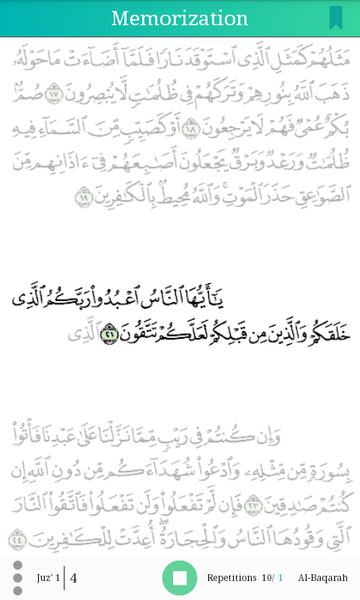 Memorization
مَثَلُهُمْ كَمَثَلِ ٱلَّذِى ٱسْتَوْقَدَ نَارًا فَلَمَّآ أَضَآءَتْ مَا حَوْلَهُۥ
ذَهَبَ ٱللَّهُ بِنُورِهِمْ وَتَرَكَهُمْ فِى ظُلُمَٰتٍ لَّا يُبْصِرُونَ ١٧ صُمٌّۢ
بُكْمٌ عُمْىٌ فَهُمْ لَا يَرْجِعُونَ ١٨ أَوْ كَصَيِّبٍ مِّنَ ٱلسَّمَآءِ فِيهِ
ظُلُمَٰتٌ وَرَعْدٌ وَبَرْقٌ يَجْعَلُونَ أَصَٰبِعَهُمْ فِىٓ ءَاذَانِهِم مِّنَ
ٱلصَّوَٰعِقِ حَذَرَ ٱلْمَوْتِ ۚ وَٱللَّهُ مُحِيطٌۢ بِٱلْكَٰفِرِينَ ١٩
يَٰٓأَيُّهَا ٱلنَّاسُ ٱعْبُدُوا۟ رَبَّكُمُ ٱلَّذِى
خَلَقَكُمْ وَٱلَّذِينَ مِن قَبْلِكُمْ لَعَلَّكُمْ تَتَّقُونَ ٢١ ٱلَّذِى
وَإِن كُنتُمْ فِى رَيْبٍ مِّمَّا نَزَّلْنَا عَلَىٰ عَبْدِنَا فَأْتُوا۟
بِسُورَةٍ مِّن مِّثْلِهِۦ وَٱدْعُوا۟ شُهَدَآءَكُم مِّن دُونِ ٱللَّهِ إِن
كُنتُمْ صَٰدِقِينَ ٢٣ فَإِن لَّمْ تَفْعَلُوا۟ وَلَن تَفْعَلُوا۟ فَٱتَّقُوا۟ ٱلنَّارَ
ٱلَّتِى وَقُودُهَا ٱلنَّاسُ وَٱلْحِجَارَةُ ۖ أُعِدَّتْ لِلْكَٰفِرِينَ ٢٤
Juz' 1 | 4 Repetitions 10/ 1 Al-Baqarah